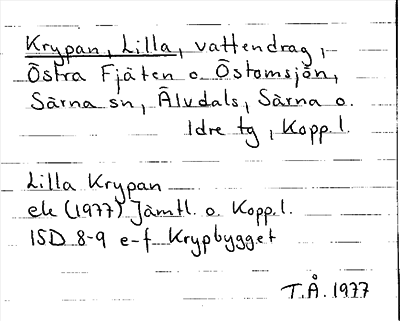 Krypan, Lilla, vattendrag,
Östra Fjäten o. Östomsjön,
Särna sn, Älvdals, Särna o.
Idre tg, Kopp.l.
Lilla Krypan
ek (1977) Jämtl. o. Kopp.l.
15D 8-9 e-f Krypbygget
T.Å. 1977